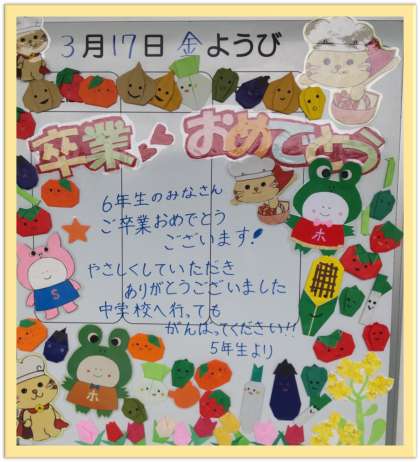 3月17日金ようび
卒業おめでとう
6年生のみなさん
ご卒業おめでとう
ございます!
やさしくしていただき
ありがとうございました
中学校へ行っても
がんばってください!!
5年生より
ホ
S
ホ